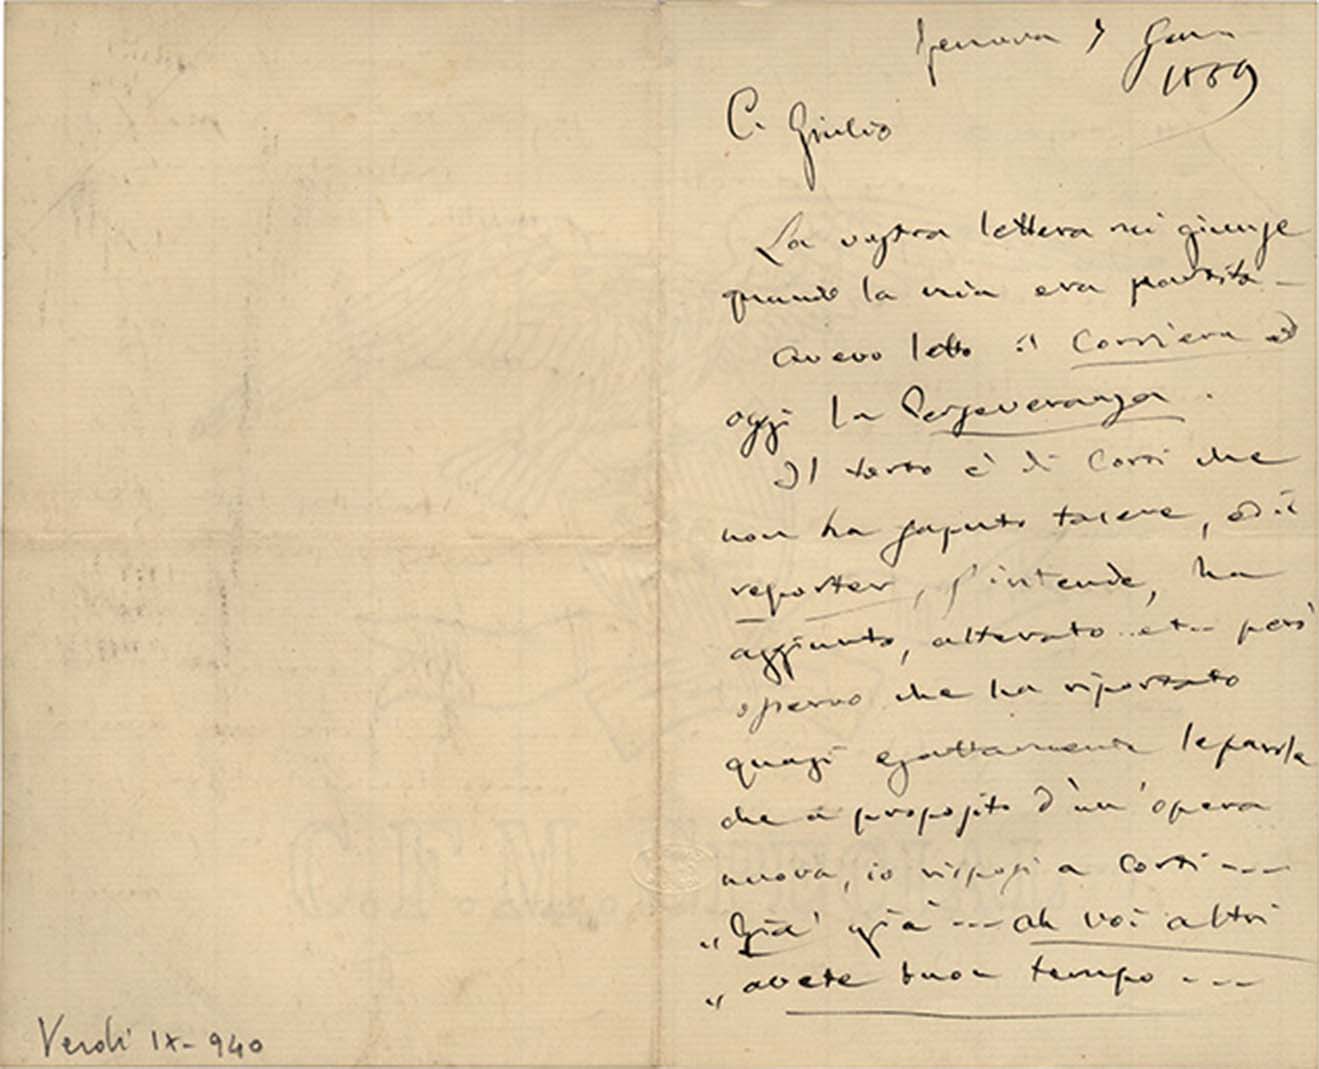 Genova 5 Genn
1889
C. Giulio
La vostra lettera mi giunge
quando la mia era partita –
Avevo letto il Corriere ed
oggi la Perseveranza .
Il torto è di Corti che
non ha saputo tacere, ed il
reporter, s'intende, ha
aggiunto, alterato .. et .. però
osservo che ha riportato
quasi esattamente le parole
che a proposito d'un'opera
nuova, io risposi a Corti ---
„ Già già --- ah voi altri
„ avete buon tempo ---
Verdi IX-940